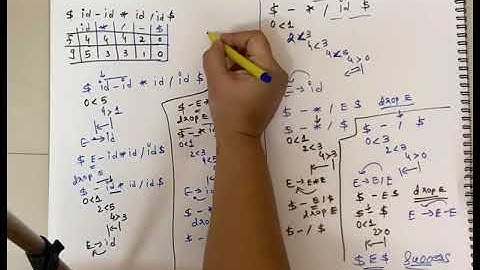 $ id-id * id / id $
id * / - $
f 4 4 4 2 0
g 5 3 3 1 0
$ id-id * id / id $
0<5
4>1
E→id
$ E - id * id / id $
drop E
$ - id * id / id $
0<1
2<5
4>3
E→id
$ - E *
drop E
$ - * id
0<1
2<3
4<5
E→id
$ - *
drop
$ - *
0<1
2<3
$ - * / id $
0<1
2<3
4<3
4<5
4>0
E→id
$ - * / E $ drop E
$ - * / $
0<1
2<3
4>3
E→E*E
$ - E / $
drop E
$ - / $
$ - / $
0<1
2<3
4>0
E→E/E
$ - E $ drop E
$ - $
0<1
2>0
E→E-E
$ E $ Success